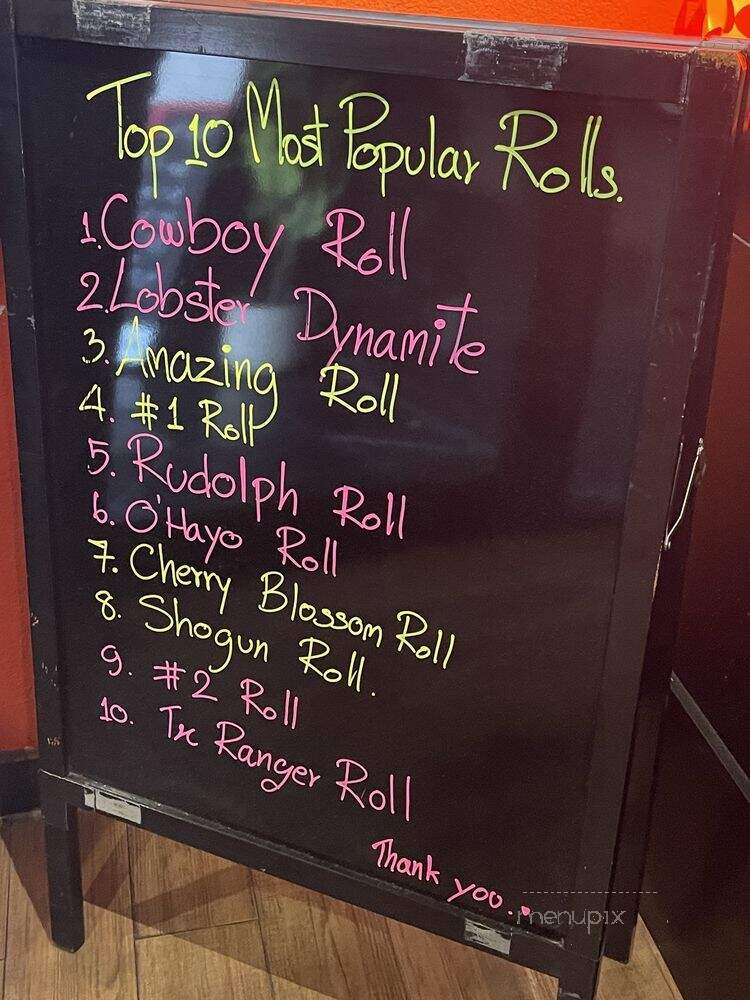 Top 10 Most Popular Rolls.
1. Cowboy Roll
2. Lobster Dynamite
3. Amazing Roll
4. #1 Roll
5. Rudolph Roll
6. O'Hayo Roll
7. Cherry Blossom Roll
8. Shogun Roll.
9. #2 Roll
10. Tx Ranger Roll
Thank you..
menupix